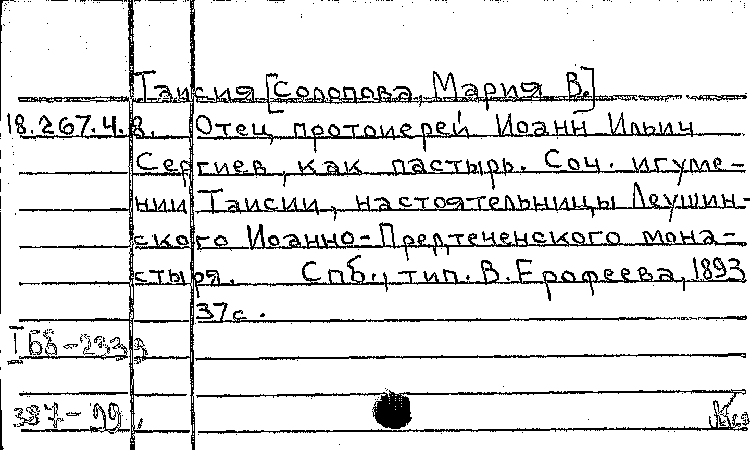 Таисия [Солопова, Мария В.]
18.267.4.8. Отец, протоиерей Иоанн Ильич
Сергиев, как пастырь. Соч. игуме-
нии Таисии, настоятельницы Леушин-
ского Иоанно-Предтеченского мона-
стыря. Спб., тип. В. Ерофеева, 1893
37с.
I 68-2339
387-99